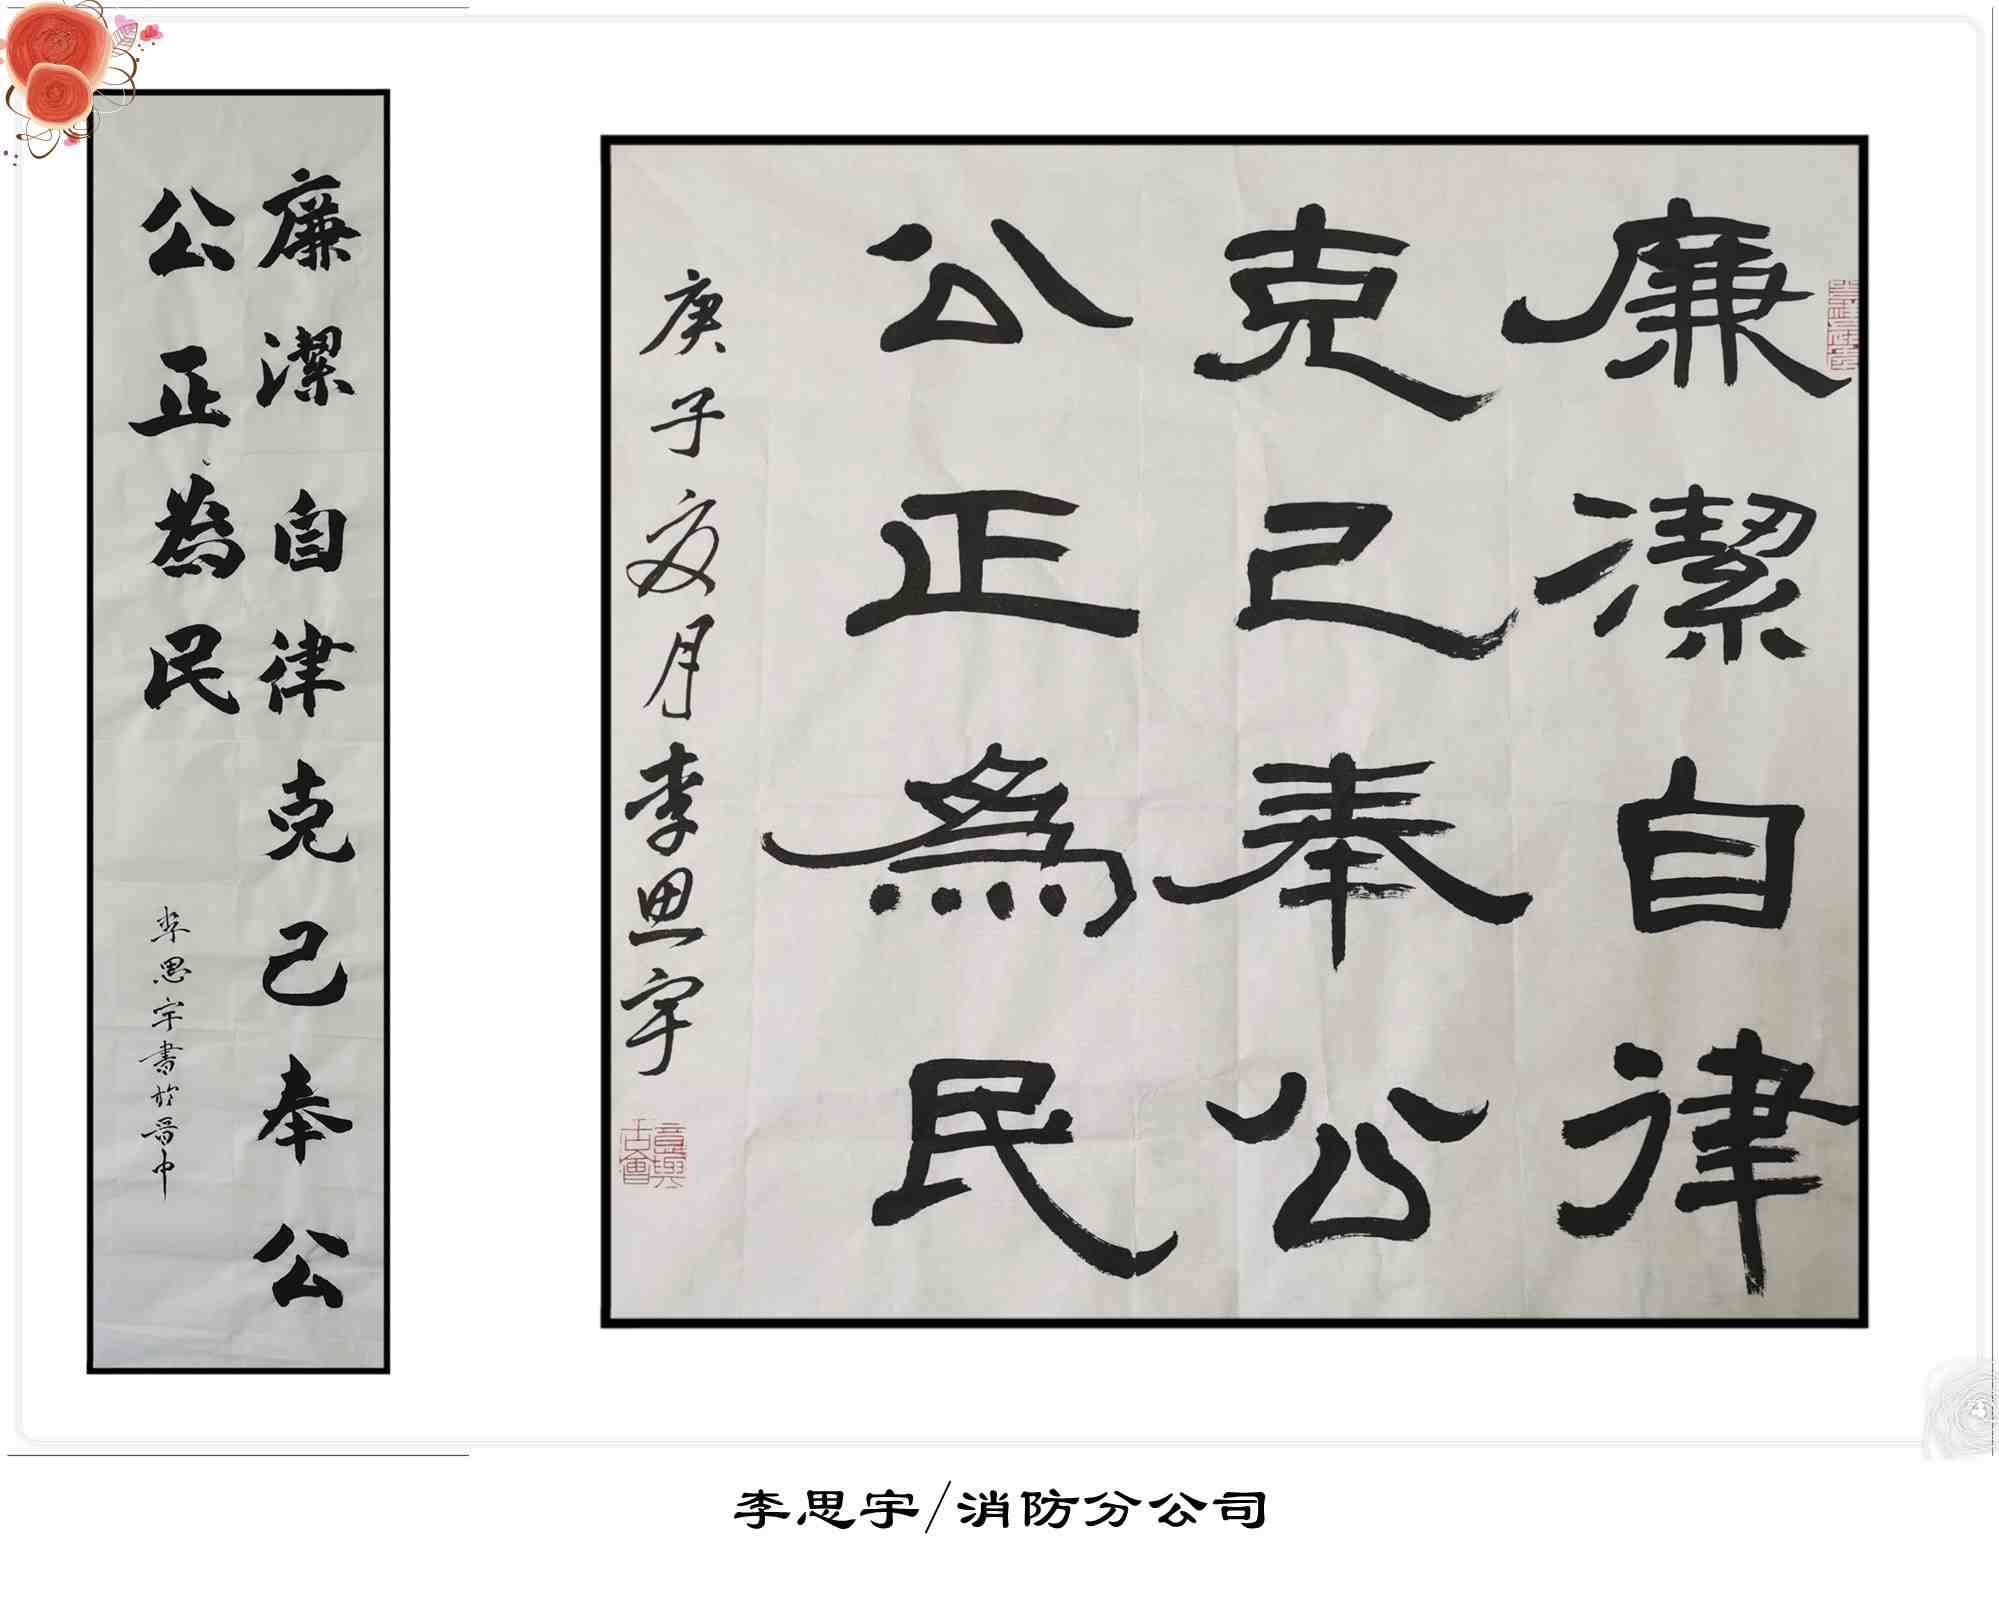 廉潔自律克己奉公
公正為民
李思宇書於晋中
廉潔自律
克己奉公
公正為民
庚子夏月李思宇
李思宇/消防分公司